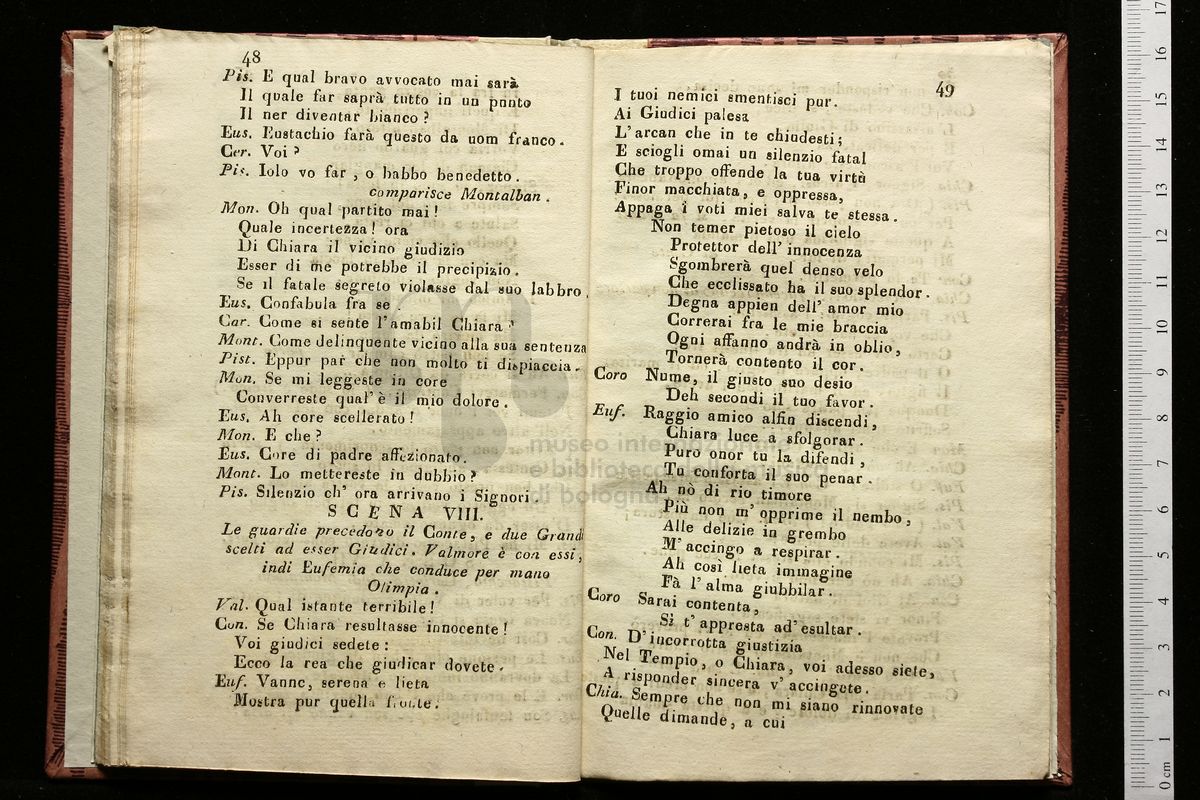 48
Pis. E qual bravo avvocato mai sarà
Il quale far saprà tutto in un punto
Il ner diventar bianco ?
Eus. Eustachio farà questo da uom franco.
Cer. Voi ?
Pis. Iolo vo far , o babbo benedetto.
comparisce Montalban .
Mon. Oh qual partito mai !
Quale incertezza ! ora
Di Chiara il vicino giudizio
Esser di me potrebbe il precipizio.
Se il fatale segreto violasse dal suo labbro.
Eus. Confabula fra se
Car. Come si sente l'amabil Chiara ?
Mont. Come delinquente vicino alla sua sentenza
Pist. Eppur par che non molto ti dispiaccia.
Mon. Se mi leggeste in core
Converreste qual' è il mio dolore.
Eus. Ah core scellerato !
Mon. E che ?
Eus. Core di padre affezionato.
Mont. Lo mettereste in dubbio ?
Pis. Silenzio ch' ora arrivano i Signori.
SCENA VIII.
Le guardie precedono il Conte, e due Grandi
scelti ad esser Giudici. Valmore è con essi,
indi Eufemia che conduce per mano
Olimpia .
Val. Qual istante terribile !
Con. Se Chiara resultasse innocente !
Voi giudici sedete :
Ecco la rea che giudicar dovete.
Euf. Vanne, serena e lieta
Mostra pur quella fronte.
49
I tuoi nemici smentisci pur.
Ai Giudici palesa
L'arcan che in te chiudesti ;
E sciogli omai un silenzio fatal
Che troppo offende la tua virtù
Finor macchiata, e oppressa,
Appaga i voti miei salva te stessa.
Non temer pietoso il cielo
Protettor dell' innocenza
Sgombrerà quel denso velo
Che ecclissato ha il suo splendor.
Degna appien dell' amor mio
Correrai fra le mie braccia
Ogni affanno andrà in oblio,
Tornerà contento il cor.
Coro Nume, il giusto suo desio
Deh secondi il tuo favor.
Euf. Raggio amico alfin discendi,
Chiara luce a sfolgorar.
Puro onor tu la difendi,
Tu conforta il suo penar.
Ah nò di rio timore
Più non m' opprime il nembo,
Alle delizie in grembo
M' accingo a respirar.
Ah così lieta immagine
Fà l' alma giubbilar.
Coro Sarai contenta,
Si t' appresta ad' esultar.
Con. D' incorrotta giustizia
Nel Tempio, o Chiara, voi adesso siete,
A risponder sincera v' accingete.
Chia. Sempre che non mi siano rinnovate
Quelle dimande, a cui
museo internazionale
e biblioteca della musica
di bologna
17
16
15
14
13
12
11
10
9
8
7
6
5
4
3
2
1
0 cm